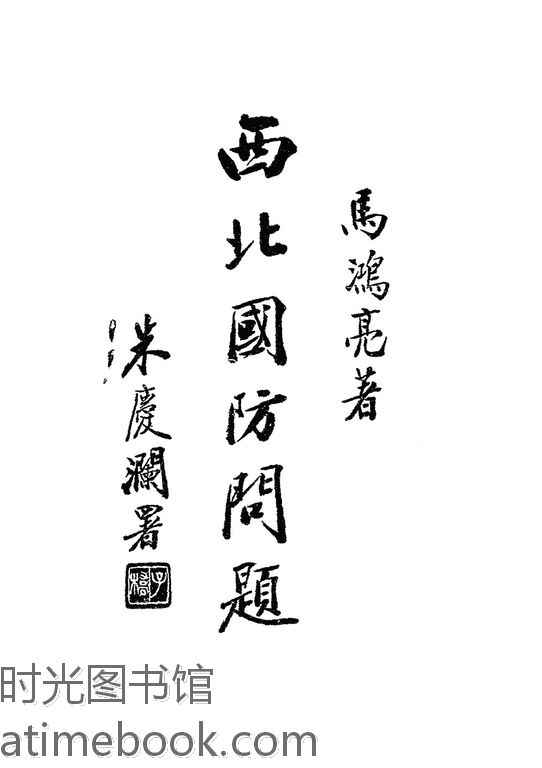 馬鴻亮著
西北國防問題
朱慶瀾署
子橋
时光图书馆
atimebook.com